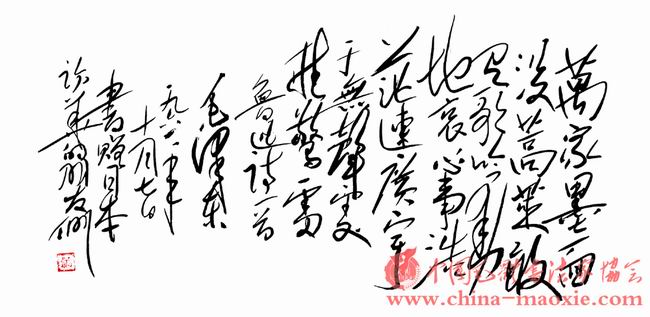 萬家墨面
没蒿萊敢
有歌吟動
地哀心事浩
茫連廣宇
于無聲處
聽驚雷
魯迅詩一首
毛澤東
一九六一年
十月七日
書贈日本
訪華的朋友們
www.china-maoxie.com